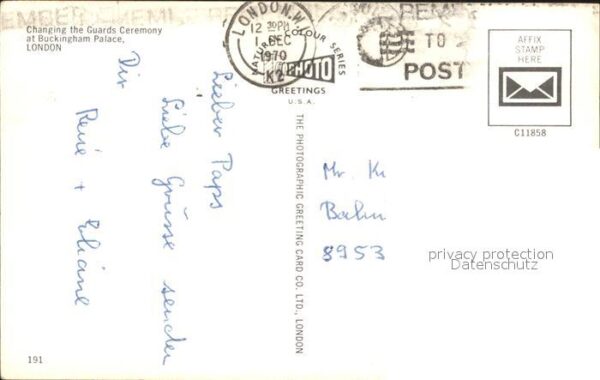 Changing the Guards Ceremony
at Buckingham Palace,
LONDON
Lieber Paps
Liebe Grüsse senden
Dir
René + Eliane
191
LONDON.W.
12 30PM
1 DEC
1970
K2
NATURE COLOUR SERIES
PHOTO
GREETINGS
U.S.A.
THE PHOTOGRAPHIC GREETING CARD CO. LTD., LONDON
REMEMBER
TO
POST
AFFIX
STAMP
HERE
C11858
Mr. Ki
8953
privacy protection
Datenschutz